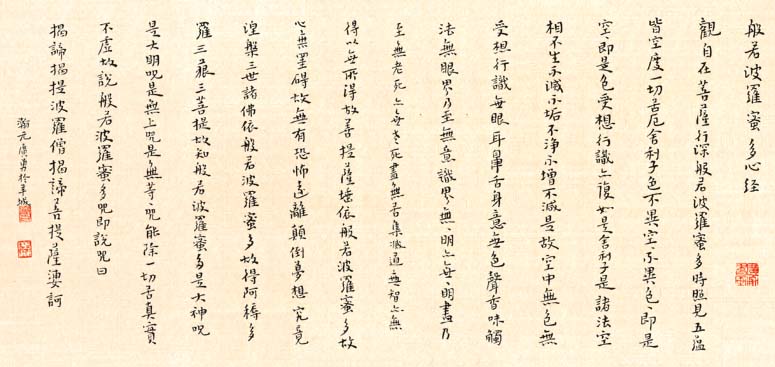 般若波羅蜜多心经
觀自在菩薩行深般若波羅蜜多時照見五蕴
皆空度一切苦厄舍利子色不異空、不異色、即是
空、即是色受想行識亦復如是舍利子是諸法空
相不生不滅不垢不净不增不減是故空中無色無
受想行識無眼耳鼻舌身意無色聲香味觸
法無眼界乃至無意識界無、明亦無、明盡乃
至無老死亦無老死盡無苦集滅道無智亦無
得以無所得故菩提薩埵依般若波羅蜜多故
心無罣碍故無有恐怖遠離顛倒夢想究竟
涅槃三世諸佛依般若波羅蜜多故得阿耨多
羅三藐三菩提故知般若波羅蜜多是大神呪
是大明呪是無上呪是無等、呪能除一切苦真實
不虛故說般若波羅蜜多呪即說呪曰
揭諦揭提波羅僧揭諦菩提薩婆訶
元廣勇於羊城